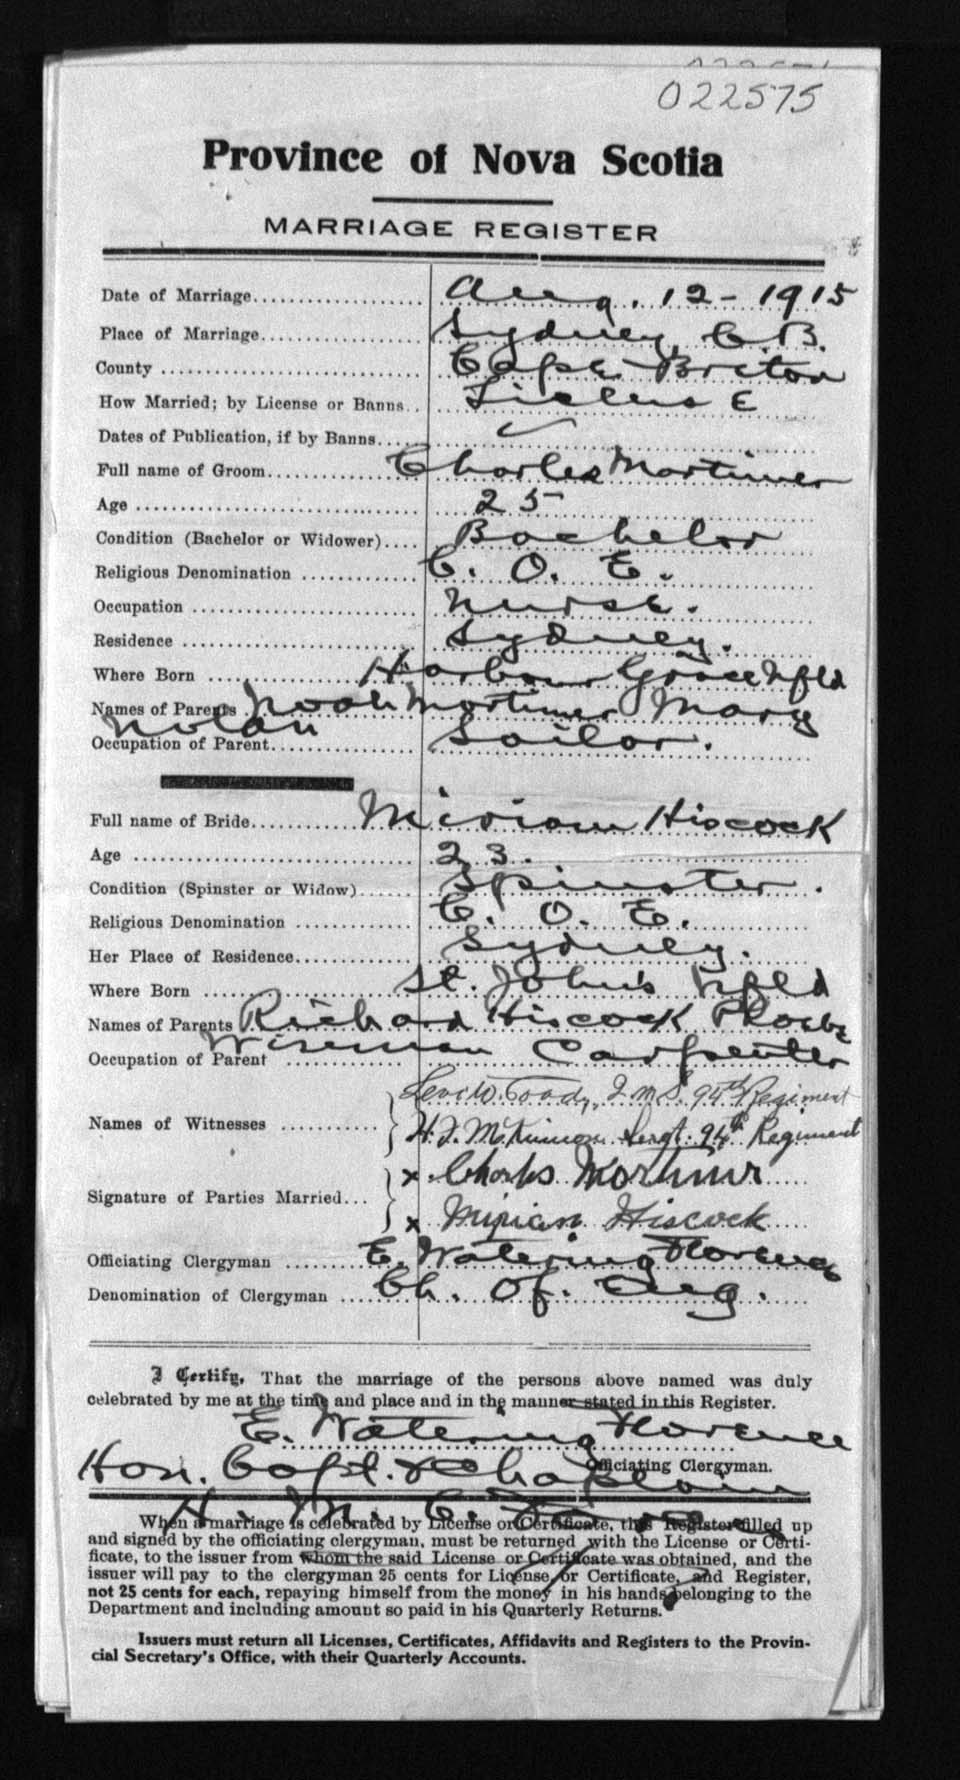 022575
Province of Nova Scotia
MARRIAGE REGISTER
Date of Marriage Aug. 12 - 1915
Place of Marriage Sydney, C. B.
County Cape Breton
How Married; by License or Banns License
Dates of Publication, if by Banns
Full name of Groom Charles Mortimer
Age 25
Condition (Bachelor or Widower) Bachelor
Religious Denomination C. O. E.
Occupation Nurse.
Residence Sydney.
Where Born Harbour Grace Nfld
Names of Parents Noah Mortimer Mary
Nolan
Occupation of Parent Sailor.
Full name of Bride Miriam Hiscock
Age 23.
Condition (Spinster or Widow) Spinster.
Religious Denomination C. O. E.
Her Place of Residence Sydney.
Where Born St. John's Nfld
Names of Parents Richard Hiscock Phoebe
Wiseman
Occupation of Parent Carpenter
Levi W. 94th Regiment
Names of Witnesses
H. J. McKinnon Sergt. 94th Regiment
x Charles Mortimer
Signature of Parties Married
x Miriam Hiscock
Officiating Clergyman E. Watering Florence
Denomination of Clergyman Ch. of Eng.
I Certify, That the marriage of the persons above named was duly
celebrated by me at the time and place and in the manner stated in this Register.
E. Watering Florence
Officiating Clergyman.
Hon. Capt. & Chaplain
When a marriage is celebrated by License or Certificate, this Register filled up
and signed by the officiating clergyman, must be returned with the License or Certi-
ficate, to the issuer from whom the said License or Certificate was obtained, and the
issuer will pay to the clergyman 25 cents for License or Certificate, and Register,
not 25 cents for each, repaying himself from the money in his hands belonging to the
Department and including amount so paid in his Quarterly Returns.
Issuers must return all Licenses, Certificates, Affidavits and Registers to the Provin-
cial Secretary's Office, with their Quarterly Accounts.